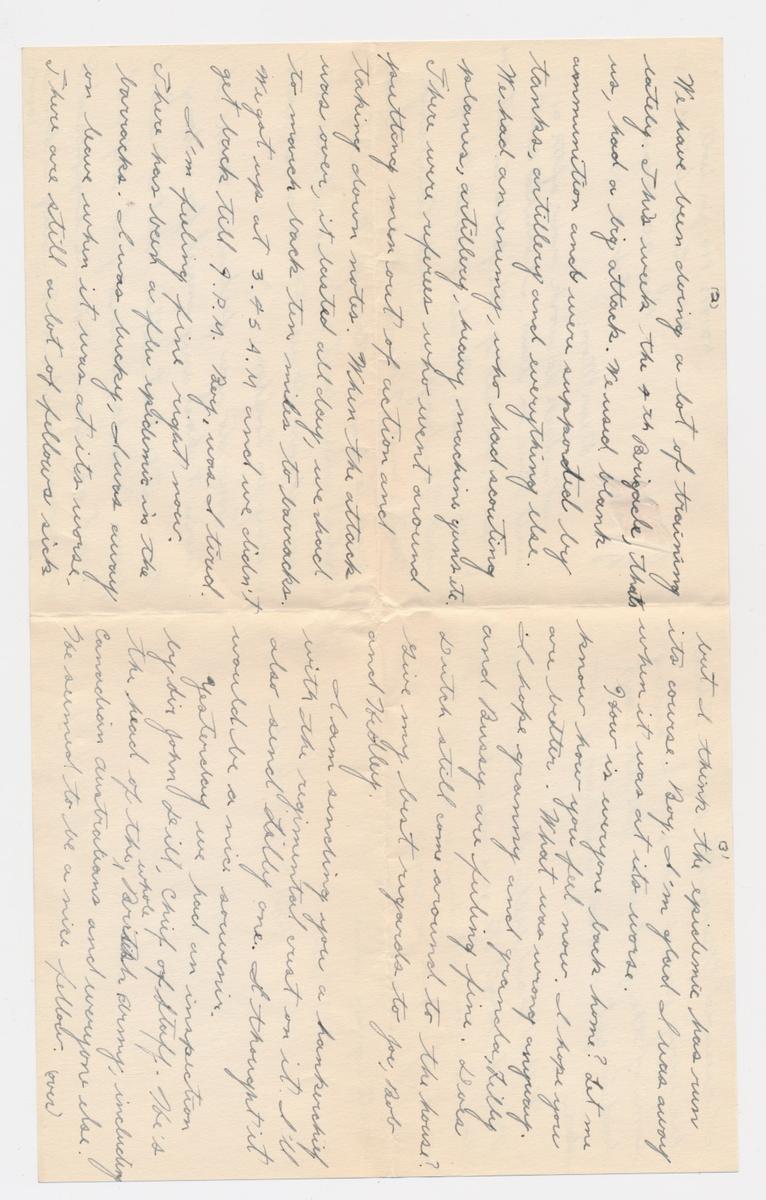 (2)
We have been doing a lot of training
lately. This week the 4th Brigade, thats
us, had a big attack. We used blank
ammunition and were supported by
tanks, artillery and everything else.
We had an enemy, who had scouting
planes, artillery, heavy machine guns etc.
There were referees who went around
putting men out of action and
taking down notes. When the attack
was over, it lasted all day, we had
to march back ten miles to barracks.
We got up at 3.45 A.M and we didn't
get back till 9.P.M. Boy, was I tired.
I'm feeling fine right now.
There has been a flu epidemic in the
barracks. I was lucky, I was away
on leave when it was at its worse.
There are still a lot of fellows sick
3'
but I think the epidemic has run
its course. Boy, I'm glad I was away
when it was at its worse.
How is everyone back home? Let me
know how you feel now. I hope you
are better. What was wrong anyway.
I hope granny and granda, Lilly
and Bussy are feeling fine. Does
Dutch still come around to the house?
Give my best regards to Joe, Bob
and Holley.
I am sending you a hankerchief
with the regimental crest on it. I'll
also send Lilly one. I thought it
would be a nice souvenir.
Yesterday we had an inspection
by Sir John Dill, Chief of Staff. He's
the head of the whole British Army, including
Canadian Australians and everyone else.
He seemed to be a nice fellow. (over)